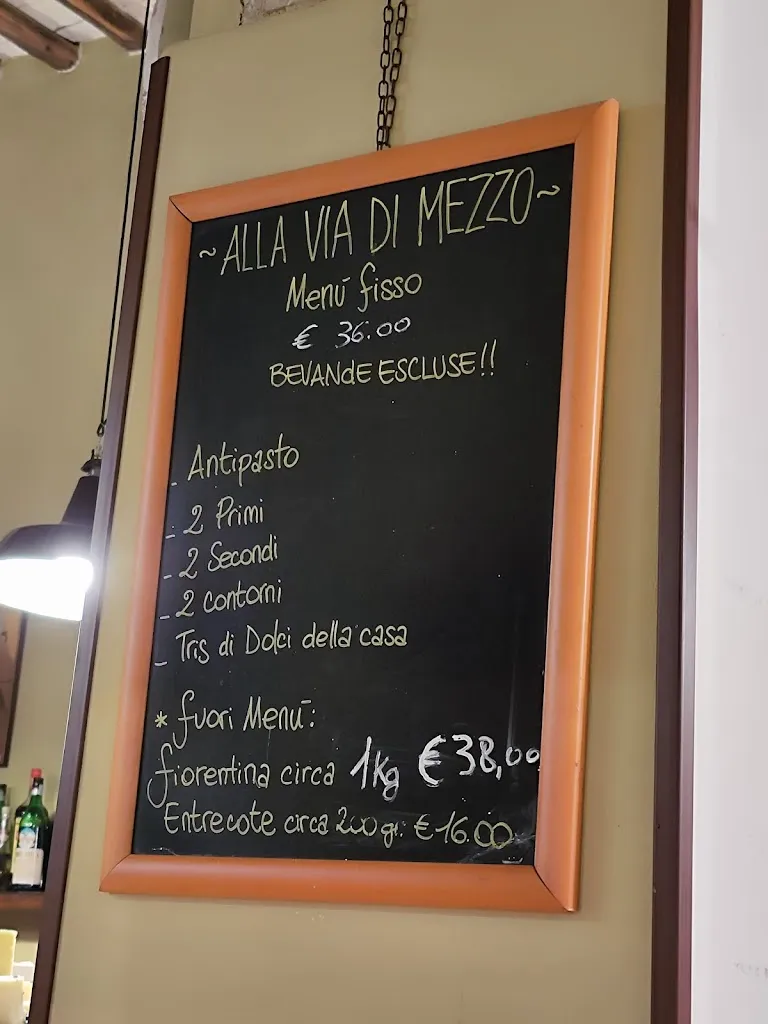 ~ALLA VIA DI MEZZO~
Menū fisso
€ 36.00
BEVANdE ESCLUSE!!
- Antipasto
- 2 Primi
- 2 Secondi
- 2 contorni
- Tris di Dolci della casa
* fuori Menū:
fiorentina circa 1kg €38,00
Entrecote circa 200gr. €16.00